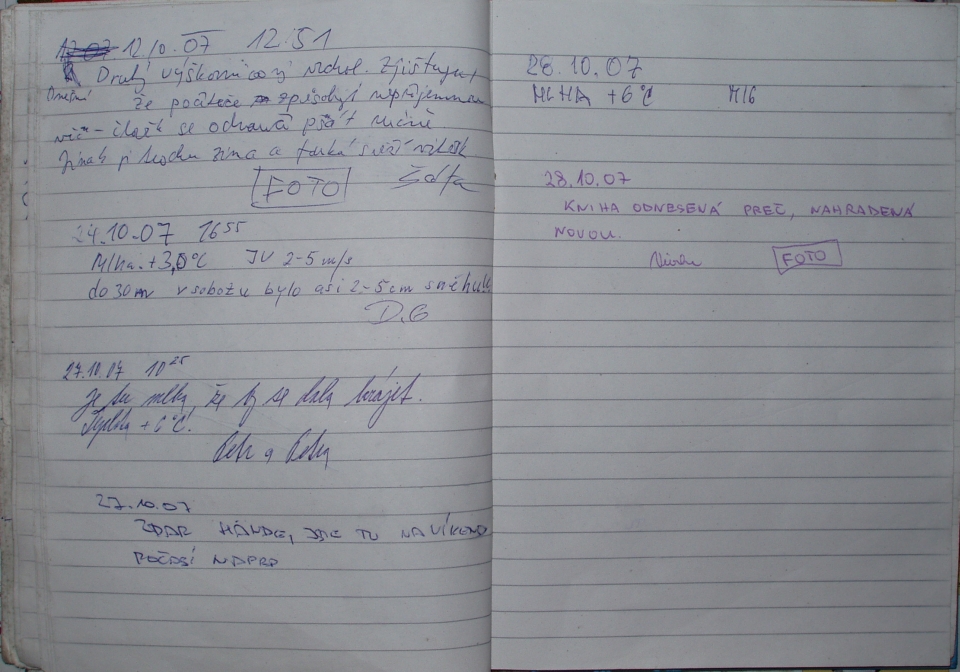 12.10.07 12:51
Druhý výškovnicový vrchol. Zjištuju,
Dnešní
že počítače způsobyli nepříjemnou
věc - člověk se odnaučí psát ručně
Jinak je trochu zima a fouká svěží větřík
FOTO Šotfa
24.10.07 16 55
Mlha: +3,0°C JV 2-5 m/s
do 30m v sobotu bylo asi 2-5 cm sněhu
D.G
27.10.07 10 25
Je tu mlha, že by se dala krájet.
Teplota +6°C.
Petr a
27.10.07
ZDAR HÁNDE, JSE TU NA VÍKEND
POČASÍ NAPRD
28.10.07
MLHA +6°C M16
28.10.07
KNIHA ODNESENÁ PREČ, NAHRADENÁ
NOVOU.
FOTO